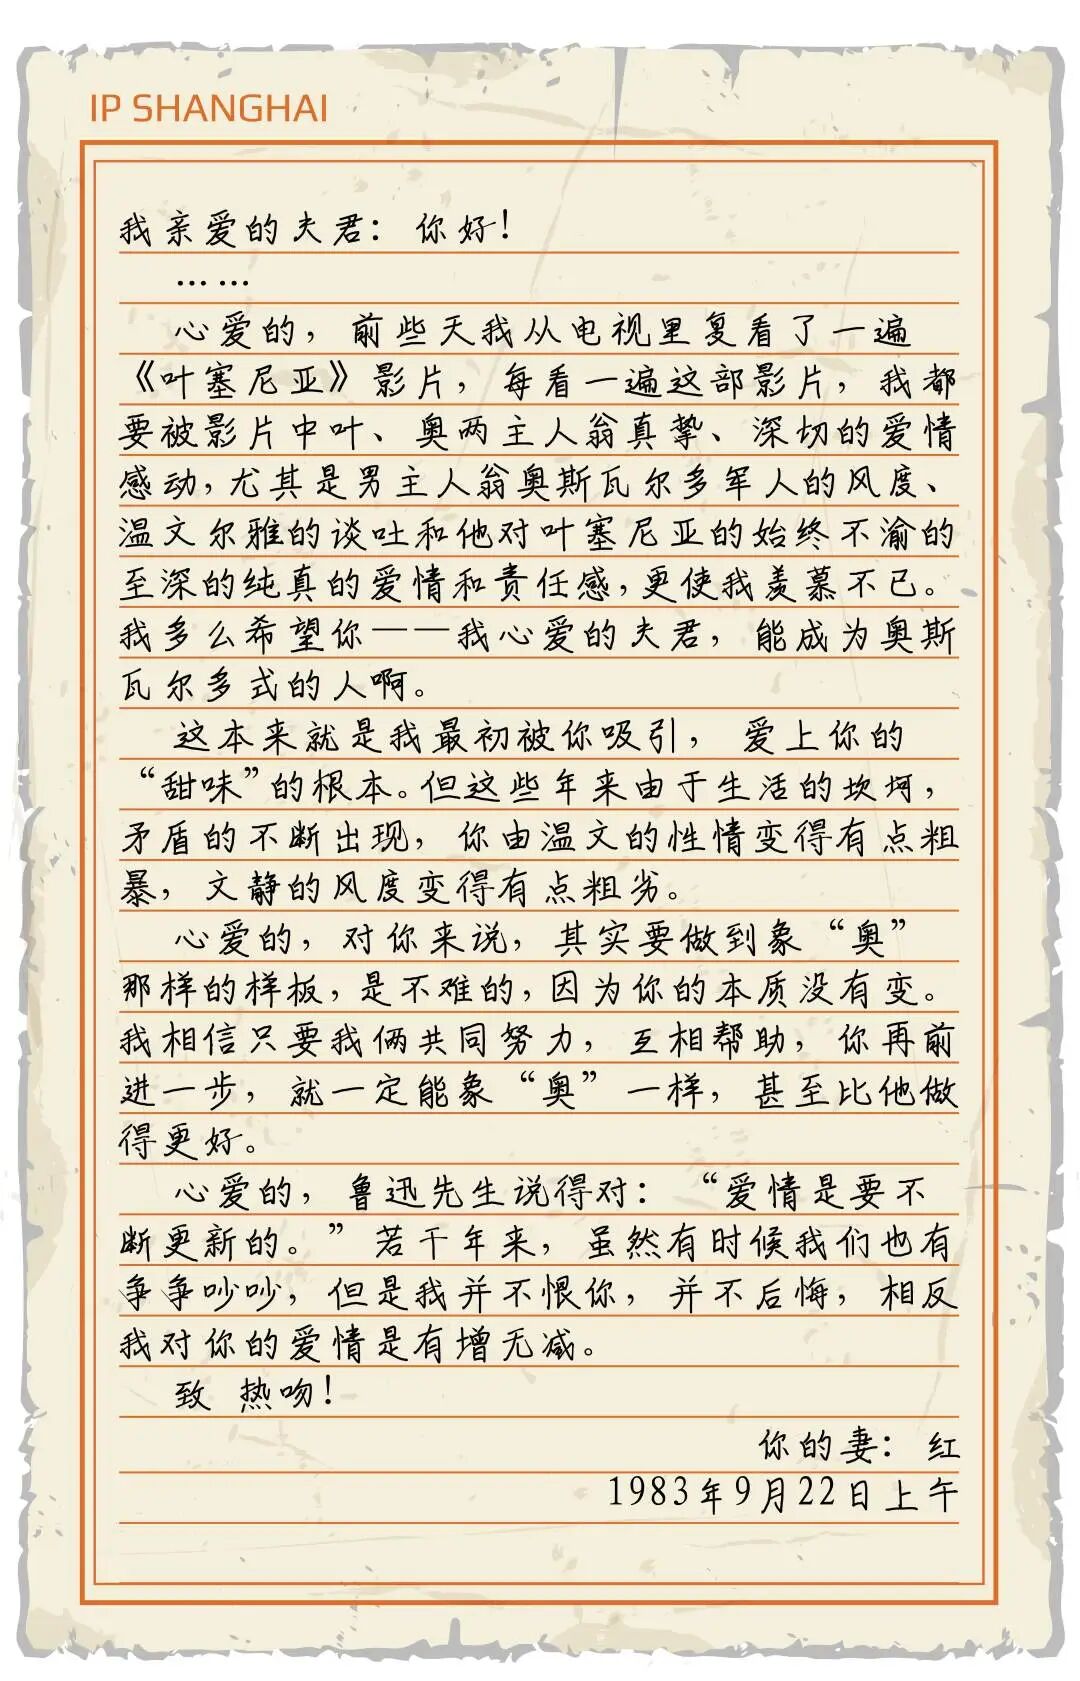 IP SHANGHAI
我亲爱的夫君：你好！
……
心爱的，前些天我从电视里复看了一遍
《叶塞尼亚》影片，每看一遍这部影片，我都
要被影片中叶、奥两主人翁真挚、深切的爱情
感动，尤其是男主人翁奥斯瓦尔多军人的风度、
温文尔雅的谈吐和他对叶塞尼亚的始终不渝的
至深的纯真的爱情和责任感，更使我羡慕不已。
我多么希望你——我心爱的夫君，能成为奥斯
瓦尔多式的人啊。
这本来就是我最初被你吸引，爱上你的
“甜味”的根本。但这些年来由于生活的坎坷，
矛盾的不断出现，你由温文的性情变得有点粗
暴，文静的风度变得有点粗劣。
心爱的，对你来说，其实要做到象“奥”
那样的样板，是不难的，因为你的本质没有变。
我相信只要我俩共同努力，互相帮助，你再前
进一步，就一定能象“奥”一样，甚至比他做
得更好。
心爱的，鲁迅先生说得对：“爱情是要不
断更新的。”若干年来，虽然有时候我们也有
争争吵吵，但是我并不恨你，并不后悔，相反
我对你的爱情是有增无减。
致 热吻！
你的妻：红
1983年9月22日上午